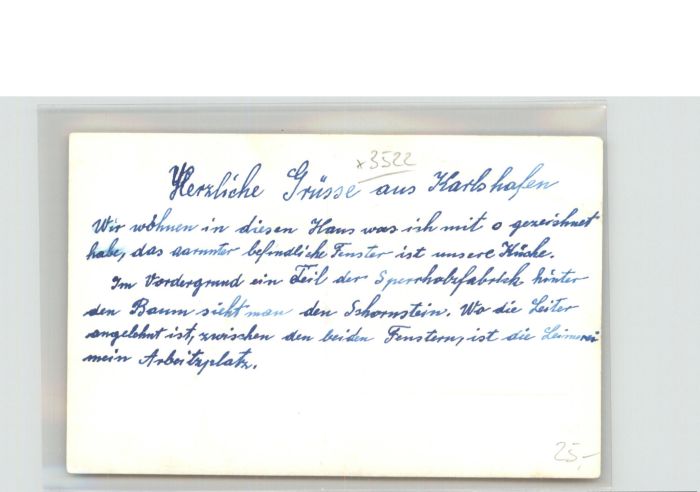 x3522
Herzliche Grüsse aus Karlshafen
Wir wohnen in diesen Haus was ich mit o gezeichnet
habe, das darunter befindliche Fenster ist unsere Küche.
Im Vordergrund ein Teil der Sperrholzfabrick hinter
den Baum sieht man den Schornstein. Wo die Leiter
angelehnt ist, zwischen den beiden Fenstern, ist die Leimerei
mein Arbeitzplatz.
25,-